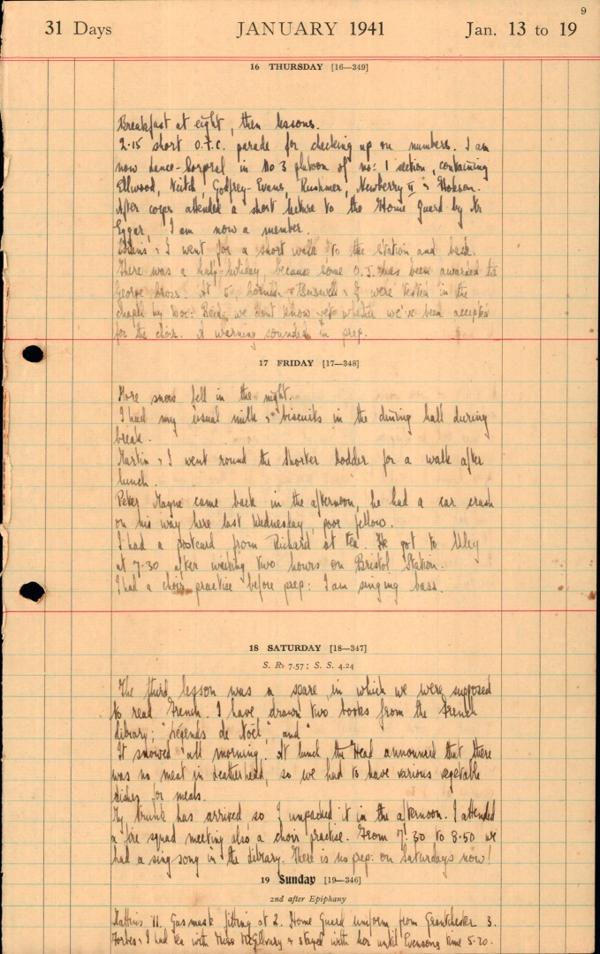 9
31 Days JANUARY 1941 Jan. 13 to 19
16 THURSDAY [16—349]
Breakfast at eight, then lessons.
2.15 short O.T.C. parade for checking up on numbers. I am
now Lance-Corporal in No 3 platoon of no: 1 section, containing
Ellwood, Keitch, Godfrey-Evans, Rushmer, Newberry II & Hobson.
After corps attended a short lecture to the Home Guard by Mr
Eggar, I am now a member.
& I went for a short walk to the Station and back.
There was a half-holiday because some O.J. has been awarded the
George Cross. At 5 & I were tested in the
chapel by We don't know yet whether we've been accepted
for the choir. A warning sounded in prep.
17 FRIDAY [17—348]
More snow fell in the night.
I had my usual milk & biscuits in the dining hall during
break.
Martin & I went round the shorter Dodder for a walk after
lunch.
Peter Mayne came back in the afternoon, he had a car crash
on his way here last Wednesday, poor fellow.
I had a postcard from Richard at tea. He got to
at 7.30 after waiting two hours on Bristol Station.
I had a choir practise before prep: I am singing bass.
18 SATURDAY [18—347]
S. R. 7.57; S. S. 4.24
The third lesson was a scare, in which we were supposed
to read French. I have drawn two books from the French
library; "Légendes de Noël", and "
It snowed all morning. At lunch the Head announced that there
was no meat in Leatherhead, so we had to have various vegetable
dishes for meals.
My trunk has arrived so I unpacked it in the afternoon. I attended
a fire squad meeting also a choir practise. From 7.30 to 8.50 we
had a sing song in the library. There is no prep. on Saturdays now!
19 Sunday [19—346]
2nd after Epiphany
Mattins 11. Gas mask fitting at 2. Home Guard uniform from Grantchester 3.
Forbes & I had tea with Miss McGilvary & stayed with her until Evensong time 5.20.